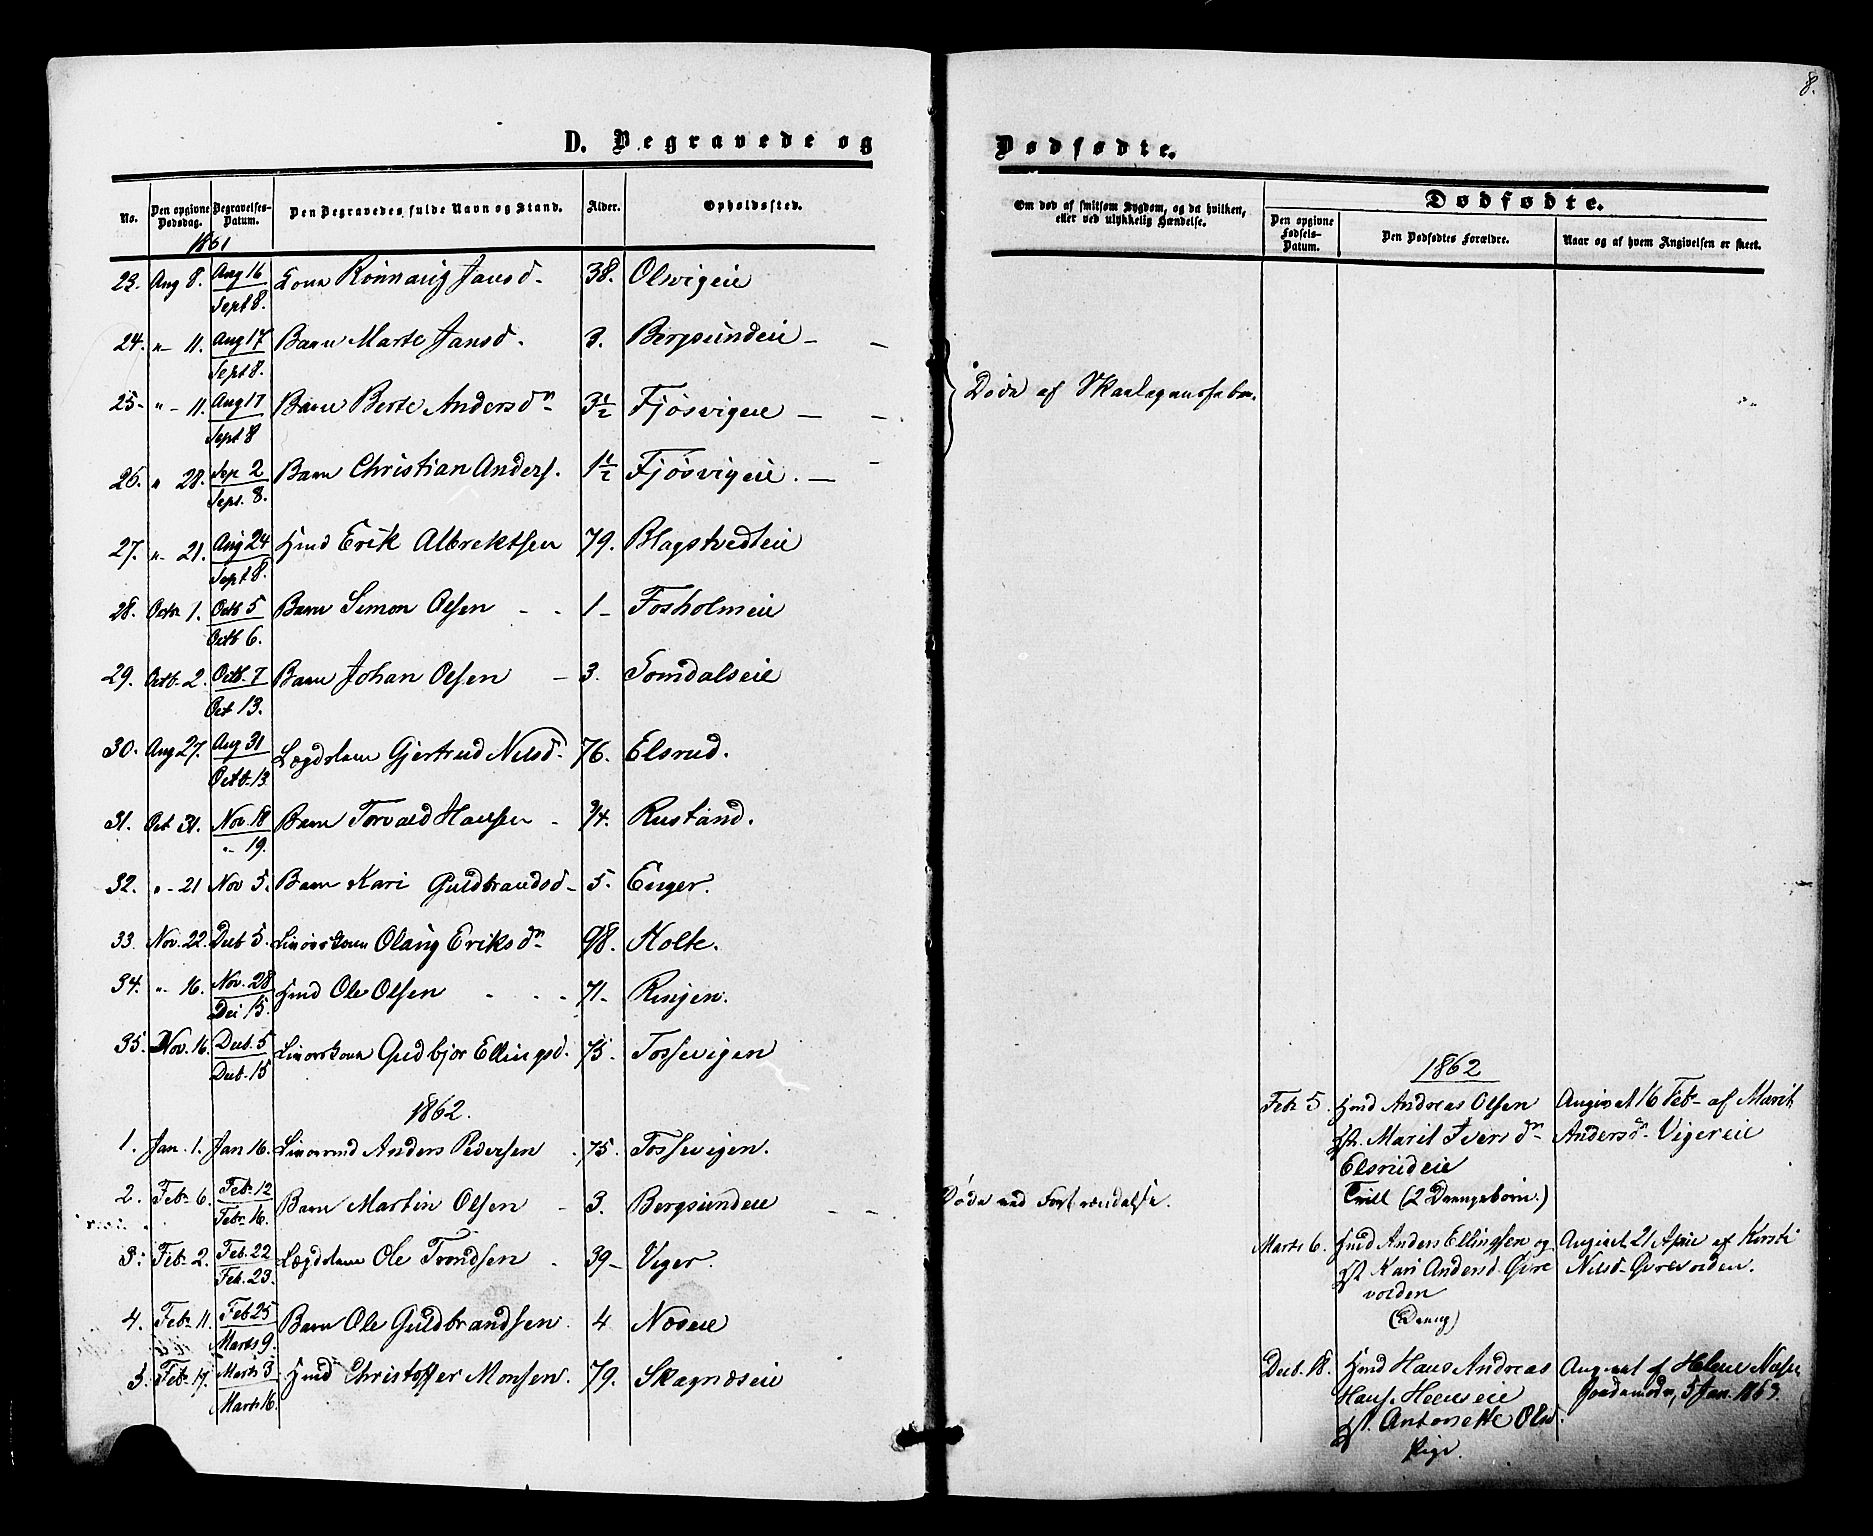 8.
D. Begravede og Dødfødte.
No. Den opgivne Dødsdag. Begravelses-Datum. Den Begravedes fulde Navn og Stand. Alder. Opholdssted.
Om død af smitsom Sygdom, og da hvilken, eller ved ulykkelig Hændelse.
Dødfødte.
Den opgivne Fødsels-Datum. Den Dødfødtes Forældre. Naar og af hvem Angivelsen er skeet.
1861
23. Aug 8. Aug 16 Sept 8. Kone Rønnaug Jansd. 38. Olsvigeie
24. "- 11. Aug 17 Sept 8. Barn Marte Jansd. 3. Bergsundeie -
25- "- 11. Aug 17 Sept 8 Barn Berte Andersdn 3 1/2 Fjøsvigeie -
Døde af Skarlagensfeber.
26. " 28. Sep 2 Sept. 8. Barn Christian Anders. 1 1/2 Fjøsvigeie. -
27. "- 21. Aug 24 Sept 8. Hmd Erik Albrektsen 79. Blagstvedteie
28. Octr 1. Octb 5 Octb 6. Barn Simon Olsen - - 1- Fosholmeie
29. Octb. 2. Octb. 7 Oct 13. Barn Johan Olsen - 3. Somdalseie
30. Aug 27. Aug 31 Octb. 13 Lægdslem Gjertrud Nilsd. 76. Elsrud.
31. Oct 31. Nov. 18 "- 19. Barn Torvald Hansen - 3/4. Rustand.
32. "- 21 Nov 5. Barn Kari Guldbrandsd- 5. Enger.
33. Nov. 22. Decb 5. Livørskone Olaug Eriksdn 98. Holte.
34. "- 16. Nov. 28 Dec 15. Hmd Ole Olsen - - - 71- Ringen.
35. Nov. 16. Decb. 5 Decb. 15 Livørskone Gudbjør Ellingsd. 75. Tossevigen
1862.
1. Jan. 1. Jan 16. Livørmd Anders Pedersen . 75. Tossevigen.
2. Febr. 6. Febr. 12 Febr. 16. Barn Martin Olsen - 3. Bergsundeie - -
Døde ved Forbrændelse.
3. Febr. 2. Feb. 22 Feb. 23. Lægdslem Ole Trondsen . 39- Viger.
4. Febr. 11. Feb 25 Marts 9. Barn Ole Guldbrandsen. 4 Næseie
5. Febr. 17. Marts 3 Marts 16. Hmd Christoffer Monsen. 79. Skagnæseie
1862
Febr 5. Hmd Andreas Olsen Angivet 16 Feb. af Marit
Hst. Marit Iversdn Andersdn Vigereie
Elsrudeie
Tvill (2 Drengebørn.)
Marts 6. Hmd Anders Ellingsen og Angivet 21 April af Kirsti
Hst Kari Andersd Øvre Nilsd. Øvrevolden.
volden
(Dreng)
Decb. 18. Hmd Hans Andreas Angivet af Helene Næs
Hans. Heenseie Jordemoder, 5 Jan. 1863.
Hst. Antonette Olsd.
Pige.